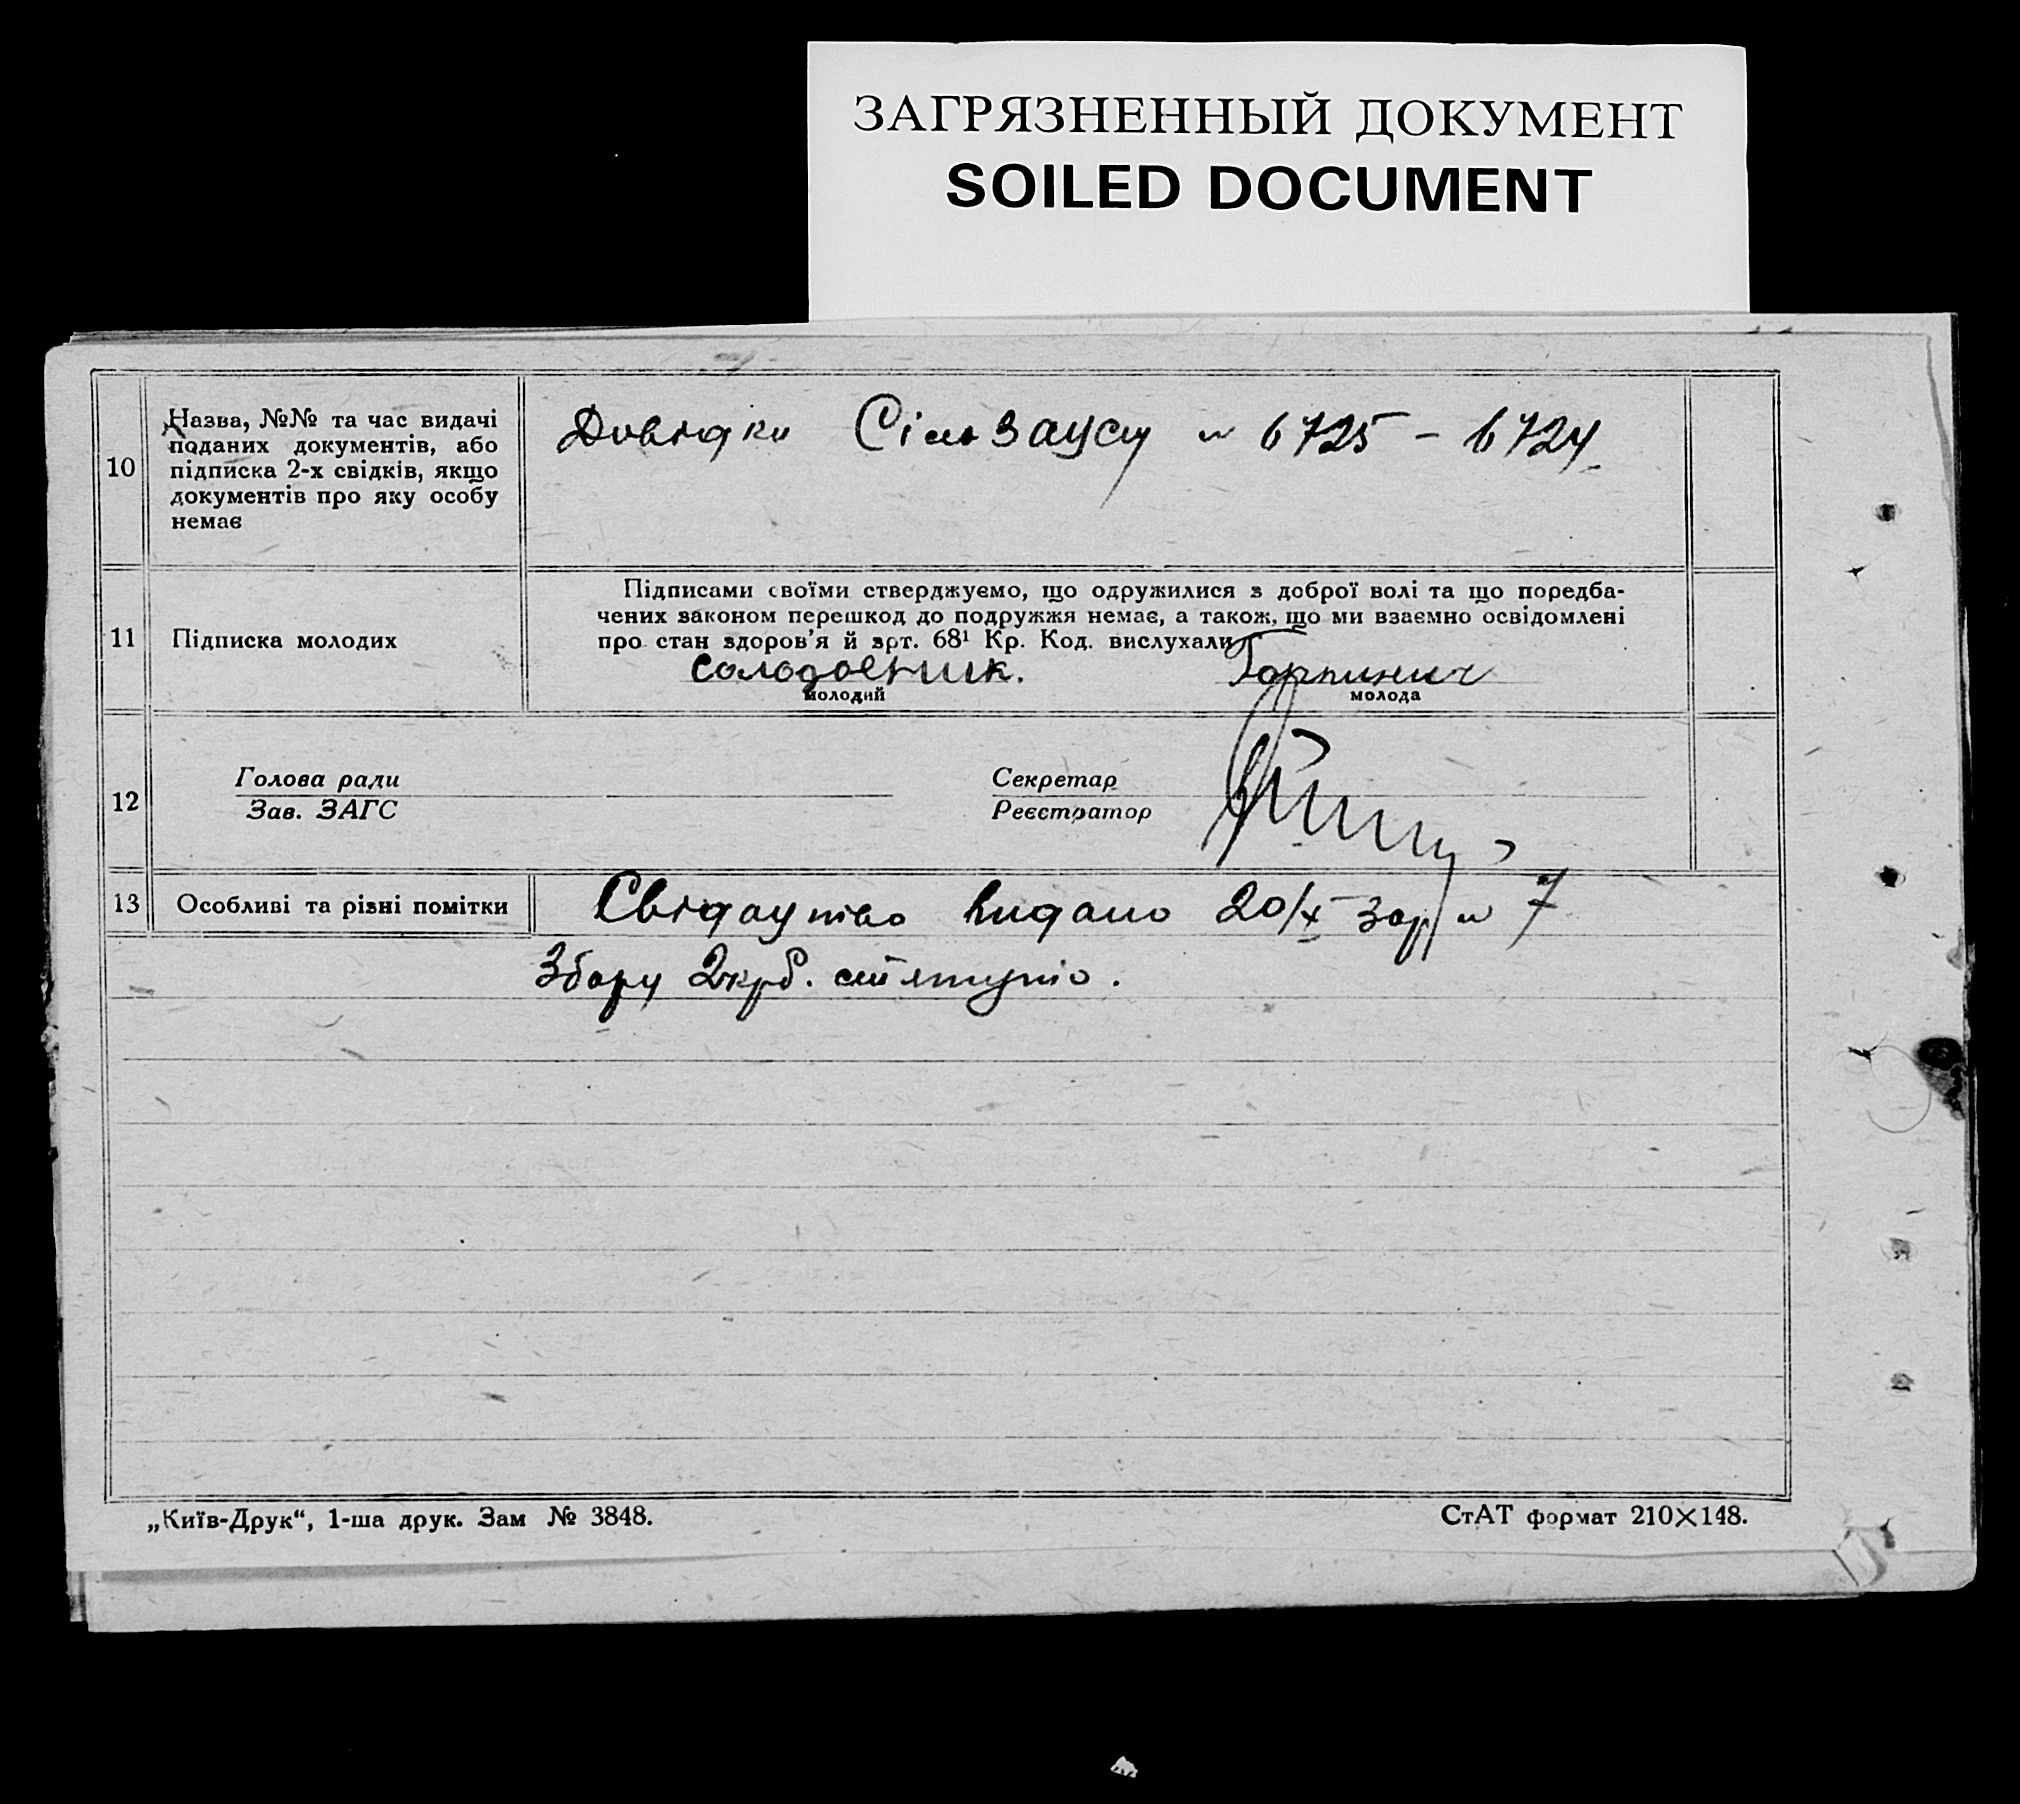 ЗАГРЯЗНЕННЫЙ ДОКУМЕНТ
SOILED DOCUMENT
10
Назва, №№ та час видачі
поданих документів, або
підписка 2-х свідків, якщо
документів про яку особу
немає
Довідки № 6725 – 6724
11
Підписка молодих
Підписами своїми стверджуємо, що одружилися з доброї волі та що поредба-
чених законом перешкод до подружжя немає, а також, що ми взаємно освідомлені
про стан здоров'я й арт. 68¹ Кр. Код. вислухали
Солодовник. Горпинич
молодий молода
12
Голова ради Секретар
Зав. ЗАГС Реєстратор
13 Особливі та різні помітки
Свідоцтво видано 20/X № 7
Збору 2 крб.
„Київ-Друк“, 1-ша друк. Зам № 3848. СтАТ формат 210×148.